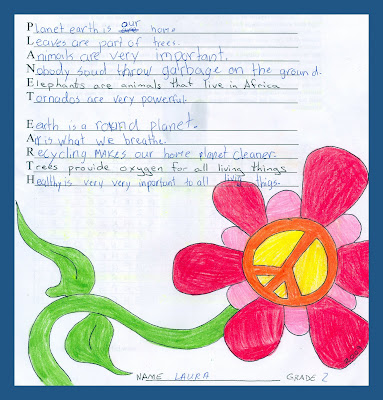 Planet earth is our home
Leaves are part of trees.
Animals are very important.
Nobody soud throw garbage on the ground.
Elephants are animals that live in Africa
Tornados are very powerful.
Earth is a round planet.
Air is what we breathe.
Recycling MAKES our home planet cleaner.
Trees provide oxygen for all living things
Healthy is very very important to all living things.
NAME LAURA GRADE 2